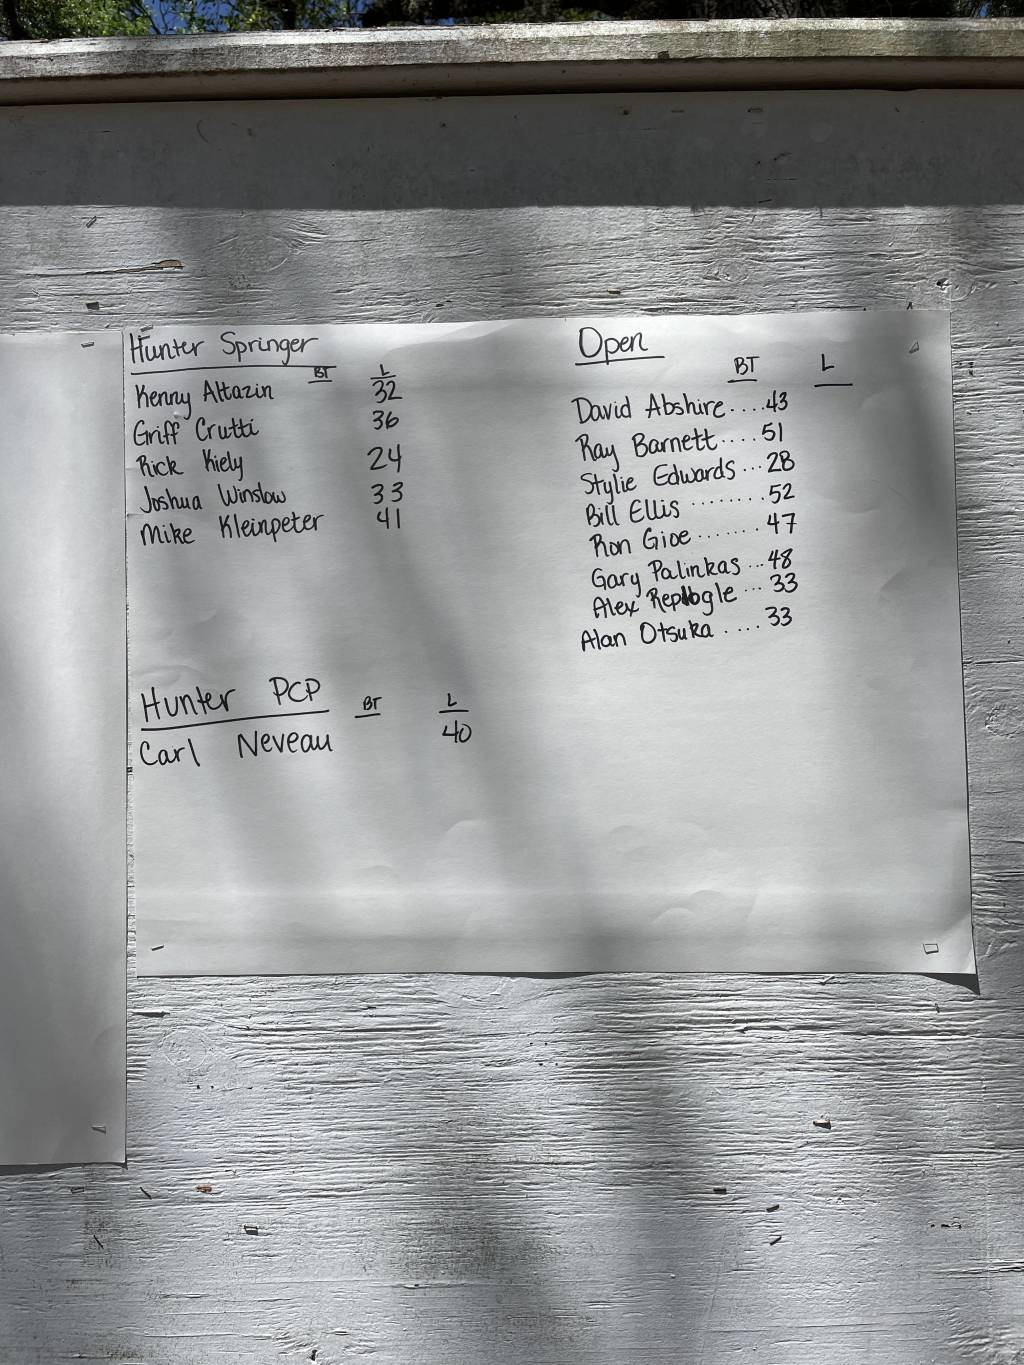 Hunter Springer
BT L
Kenny Altazin 32
Griff Crutti 36
Rick Kiely 24
Joshua Winslow 33
Mike Kleinpeter 41
Hunter PCP BT L
Carl Neveau 40
Open
BT L
David Abshire....43
Ray Barnett....51
Stylie Edwards...28
Bill Ellis ........52
Ron Gioe .......47
Gary Palinkas ...48
Alex Replogle ...33
Alan Otsuka ....33